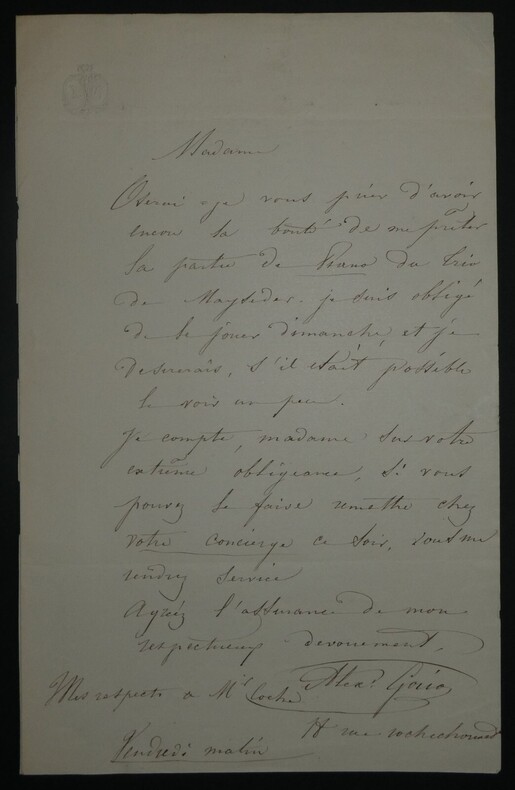 Madame
Oserai-je vous prier d'avoir
encore la bonté de me prêter
la partie de Piano du trio
de Mayseder. je suis obligé
de le jouer dimanche, et je
desirerais, s'il était possible
le voir un peu.
Je compte, madame sur votre
extrême obligeance, si vous
pouvez le faire remettre chez
votre concierge ce soir, vous me
rendrez service
Agréez l'assurance de mon
respectueux dévouement,
Mes respects a Mr
Alexre Goria
rue rochechouard
Vendredi matin